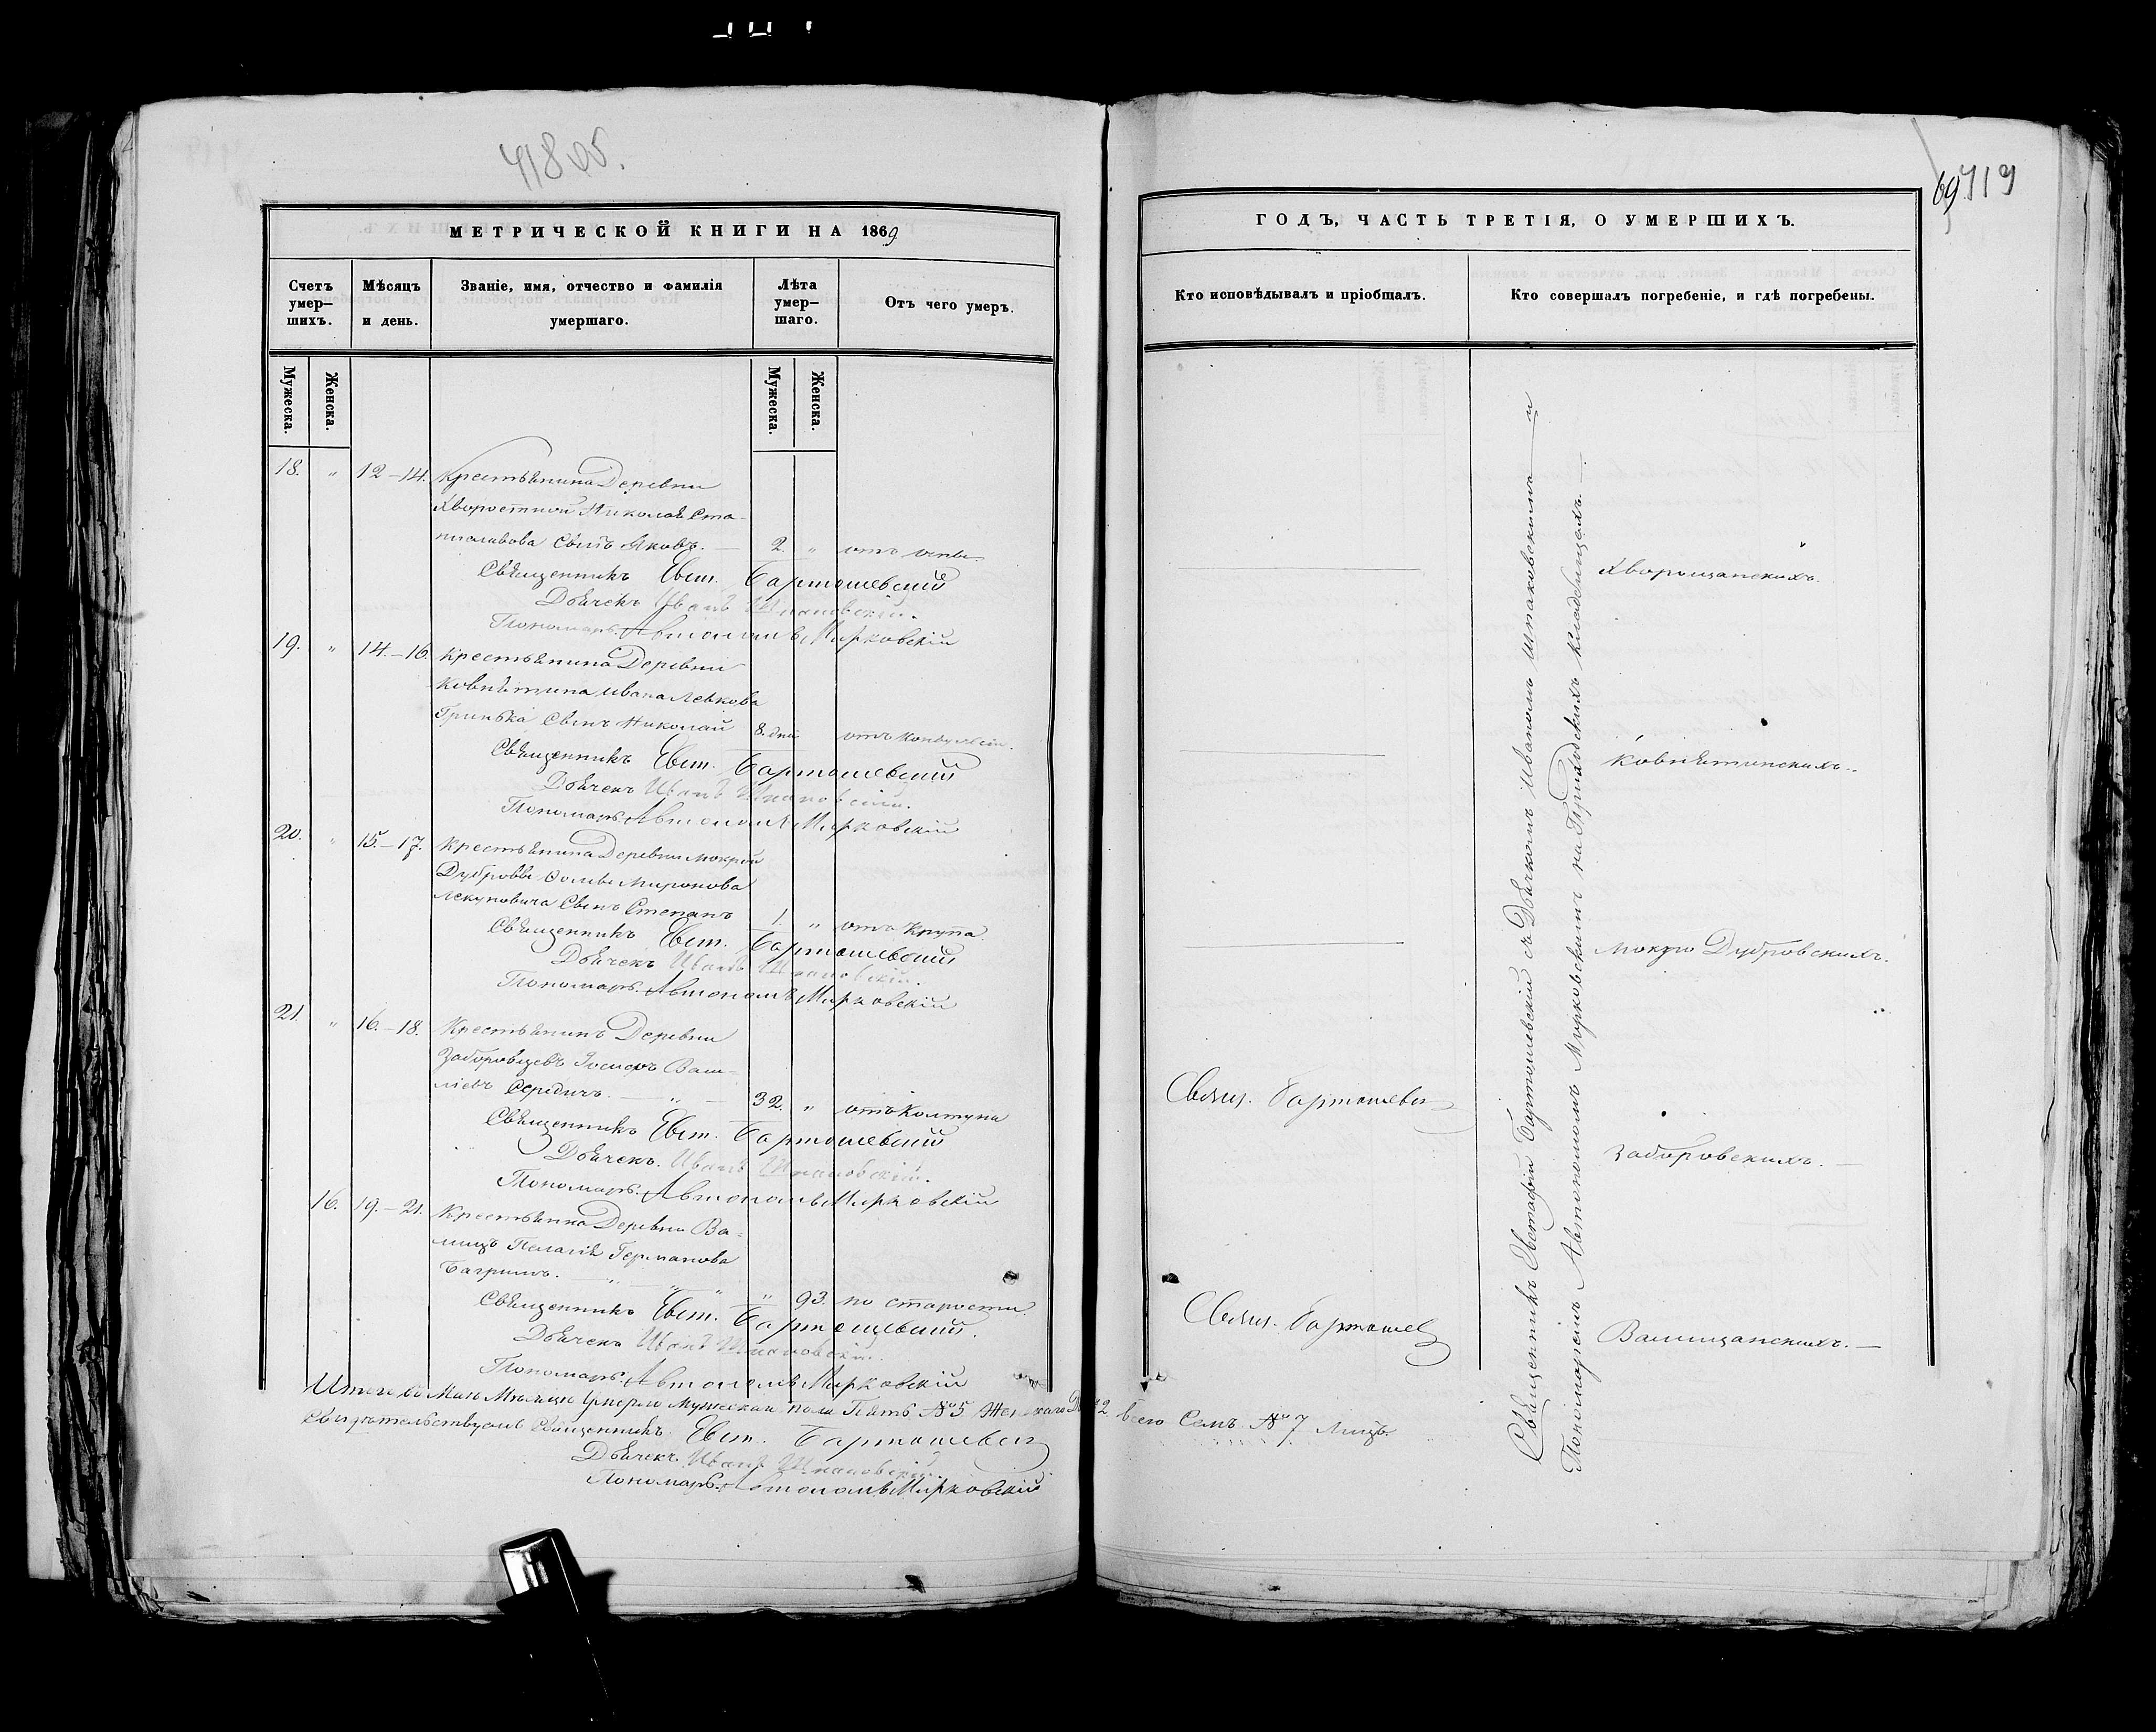 418 об.
МЕТРИЧЕСКОЙ КНИГИ НА 1869
Счетъ умер-шихъ.
Мѣсяцъ и день.
Званіе, имя, отчество и фамилія умершаго.
Лѣта умер-шаго.
Отъ чего умеръ.
Мужеска.
Женска.
Мужеска.
Женска.
18. " 12–14. Крестьянина Деревни
Хворостной Николая
Сынъ Яковъ. — 2. " отъ оспы
Священникъ Евст. Бартошевскій
Дьячекъ Иванъ Шпаковскій.
Пономарь Автономъ Мирковскій
19. " 14.–16. Крестьянина Деревни
Ковнятина Ивана Левкова
Гринька Сынъ Николай 8. дней отъ
Священникъ Евст. Бартошевскій
Дьячекъ Иванъ Шпаковскій.
Пономарь Автономъ Мирковскій
20. " 15.–17. Крестьянина Деревни Мокрой
Дубровы Ѳомы Миронова
Сынъ Степанъ 1. " отъ Крупа.
Священникъ Евст. Бартошевскій
Дьячекъ Иванъ Шпаковскій.
Пономарь. Автономъ Мирковскій
21. " 16.–18. Крестьянинъ Деревни
Заборовцевъ Іосифъ Васи-
ліевъ Середичъ. — " — 32. " отъ Колтуна
Священникъ Евст. Бартошевскій
Дьячекъ. Иванъ Шпаковскій.
Пономарь. Автономъ Мирковскій
16. 19.–21. Крестьянка Деревни Ва-
лищъ Пелагія Германова
Багримъ. " " 93. по старости.
Священникъ Евст. Бартошевскій.
Дьячекъ Иванъ Шпаковскій.
Пономарь. Автономъ Мирковскій
Итого въ Маѣ Мѣсяцѣ умерло Мужеска пола Пять №5 Женскаго 2 всего Семь №7 Лицъ.
Свидѣтельствуемъ Священникъ Евст. Бартошевскій
Дьячекъ Иванъ Шпаковскій.
Пономарь. Автономъ Мирковскій
69 419
ГОДЪ, ЧАСТЬ ТРЕТІЯ, О УМЕРШИХЪ.
Кто исповѣдывалъ и пріобщалъ.
Кто совершалъ погребеніе, и гдѣ погребены.
Священникъ Евстафій Бартошевскій съ Дьячкомъ Иваномъ Шпаковскимъ — и
Пономаремъ Автономомъ Мирковскимъ на Приходскихъ кладбищахъ. —
Хворощанскихъ.
Ковнятинскихъ..
Мокро Дубровскихъ.
Свящ. Бартошевскій
Заборовскихъ. —
Свящ. Бартошев
Валищанскихъ. —